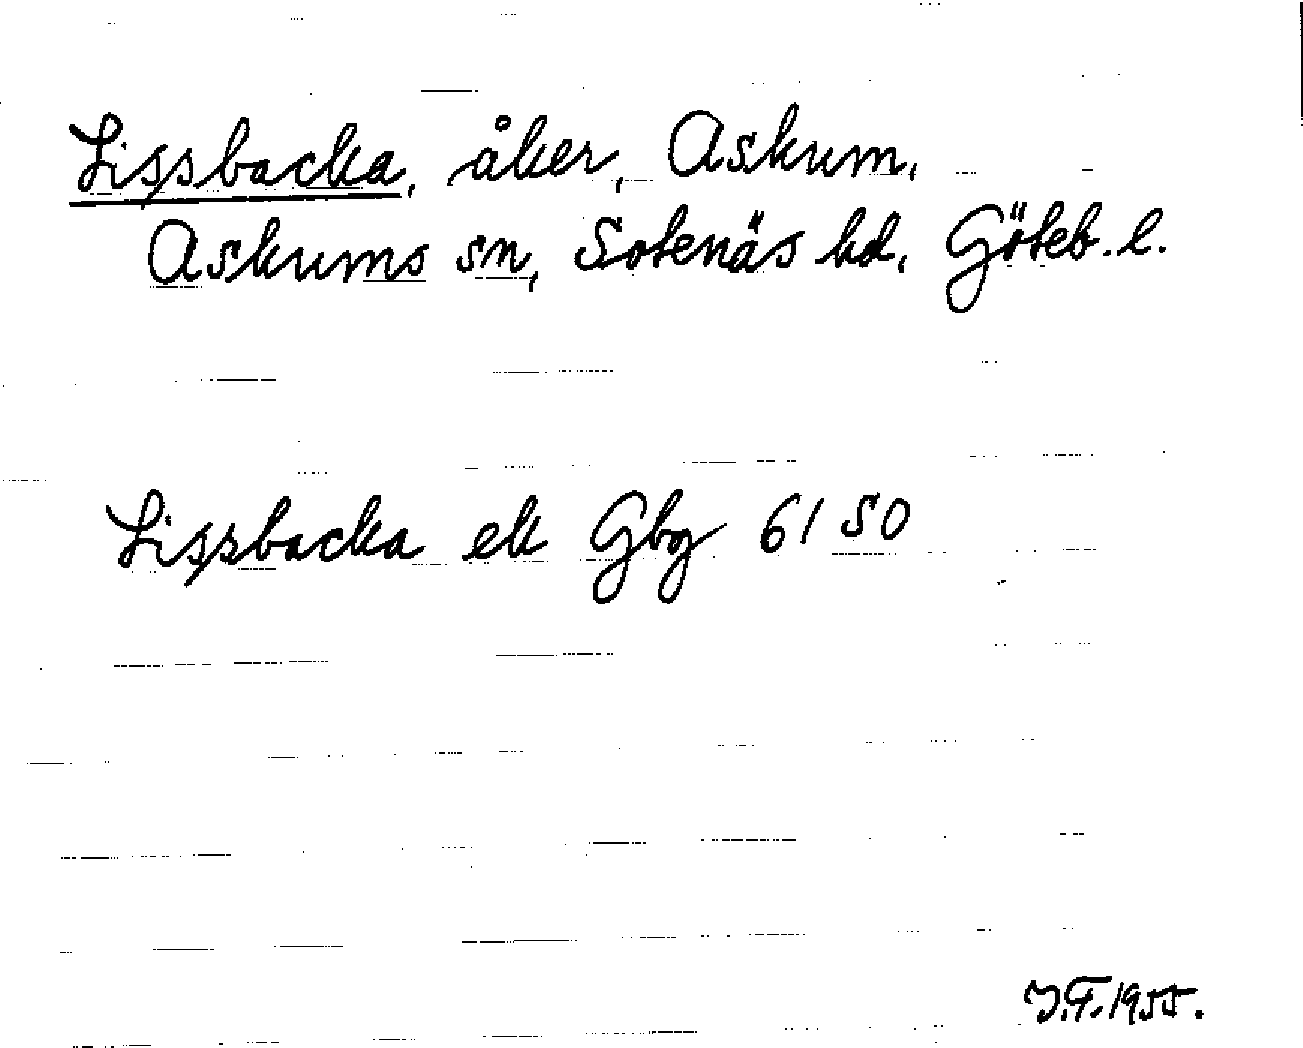 Lispsbacka, åker, Askum,
Askums sn, Sotenäs hd, Göteb. l.
Lispsbacka ek Gbg 6150
J.F. 1955.